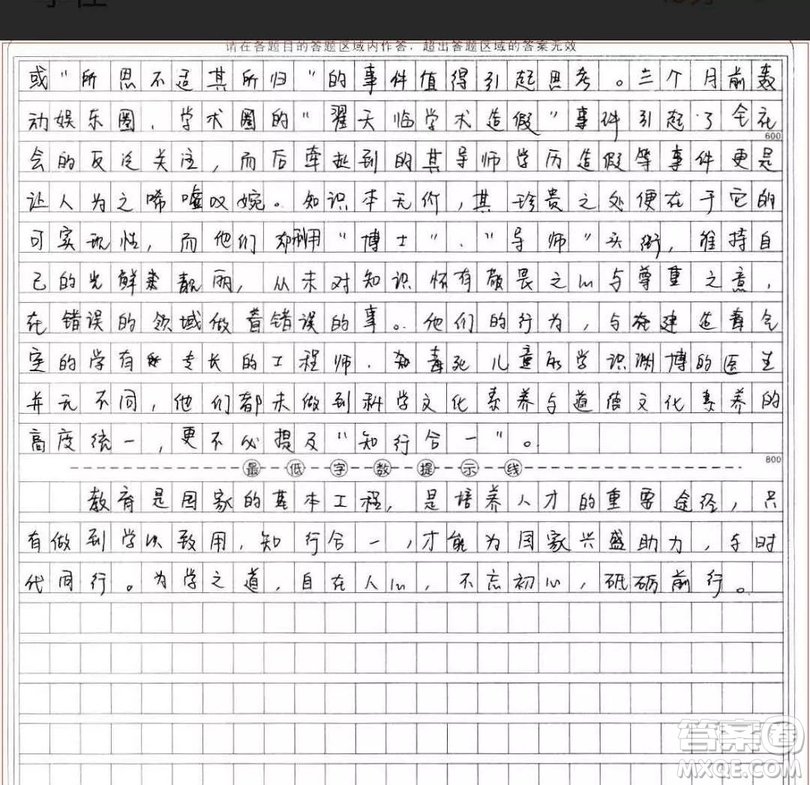 请在各题目的答题区域内作答，超出答题区域的答案无效
或“所思不适其所归”的事件值得引起思考。三个月前轰
动娱乐圈、学术圈的“翟天临学术造假”事件引起了全社
600
会的反泛关注，而后牵扯到的其导师学历造假等事件更是
让人为之唏嘘叹婉。知识本无价，其珍贵之处便在于它的
可实现性，而他们却利用“博士”、“导师”头衔，维持自
己的光鲜靓丽，从未对知识怀有敬畏之心与尊重之意，
在错误的领域做着错误的事。他们的行为，与建造毒气
室的学有专长的工程师、毒死儿童的学识渊博的医生
并无不同，他们都未做到科学文化素养与道德文化素养的
高度统一，更不必提及“知行合一”。
800
最低字数提示线
教育是国家的基本工程，是培养人才的重要途径，只
有做到学以致用，知行合一，才能为国家兴盛助力，与时
代同行。为学之道，自在人心，不忘初心，砥砺前行。
答案圈
MXQE.COM